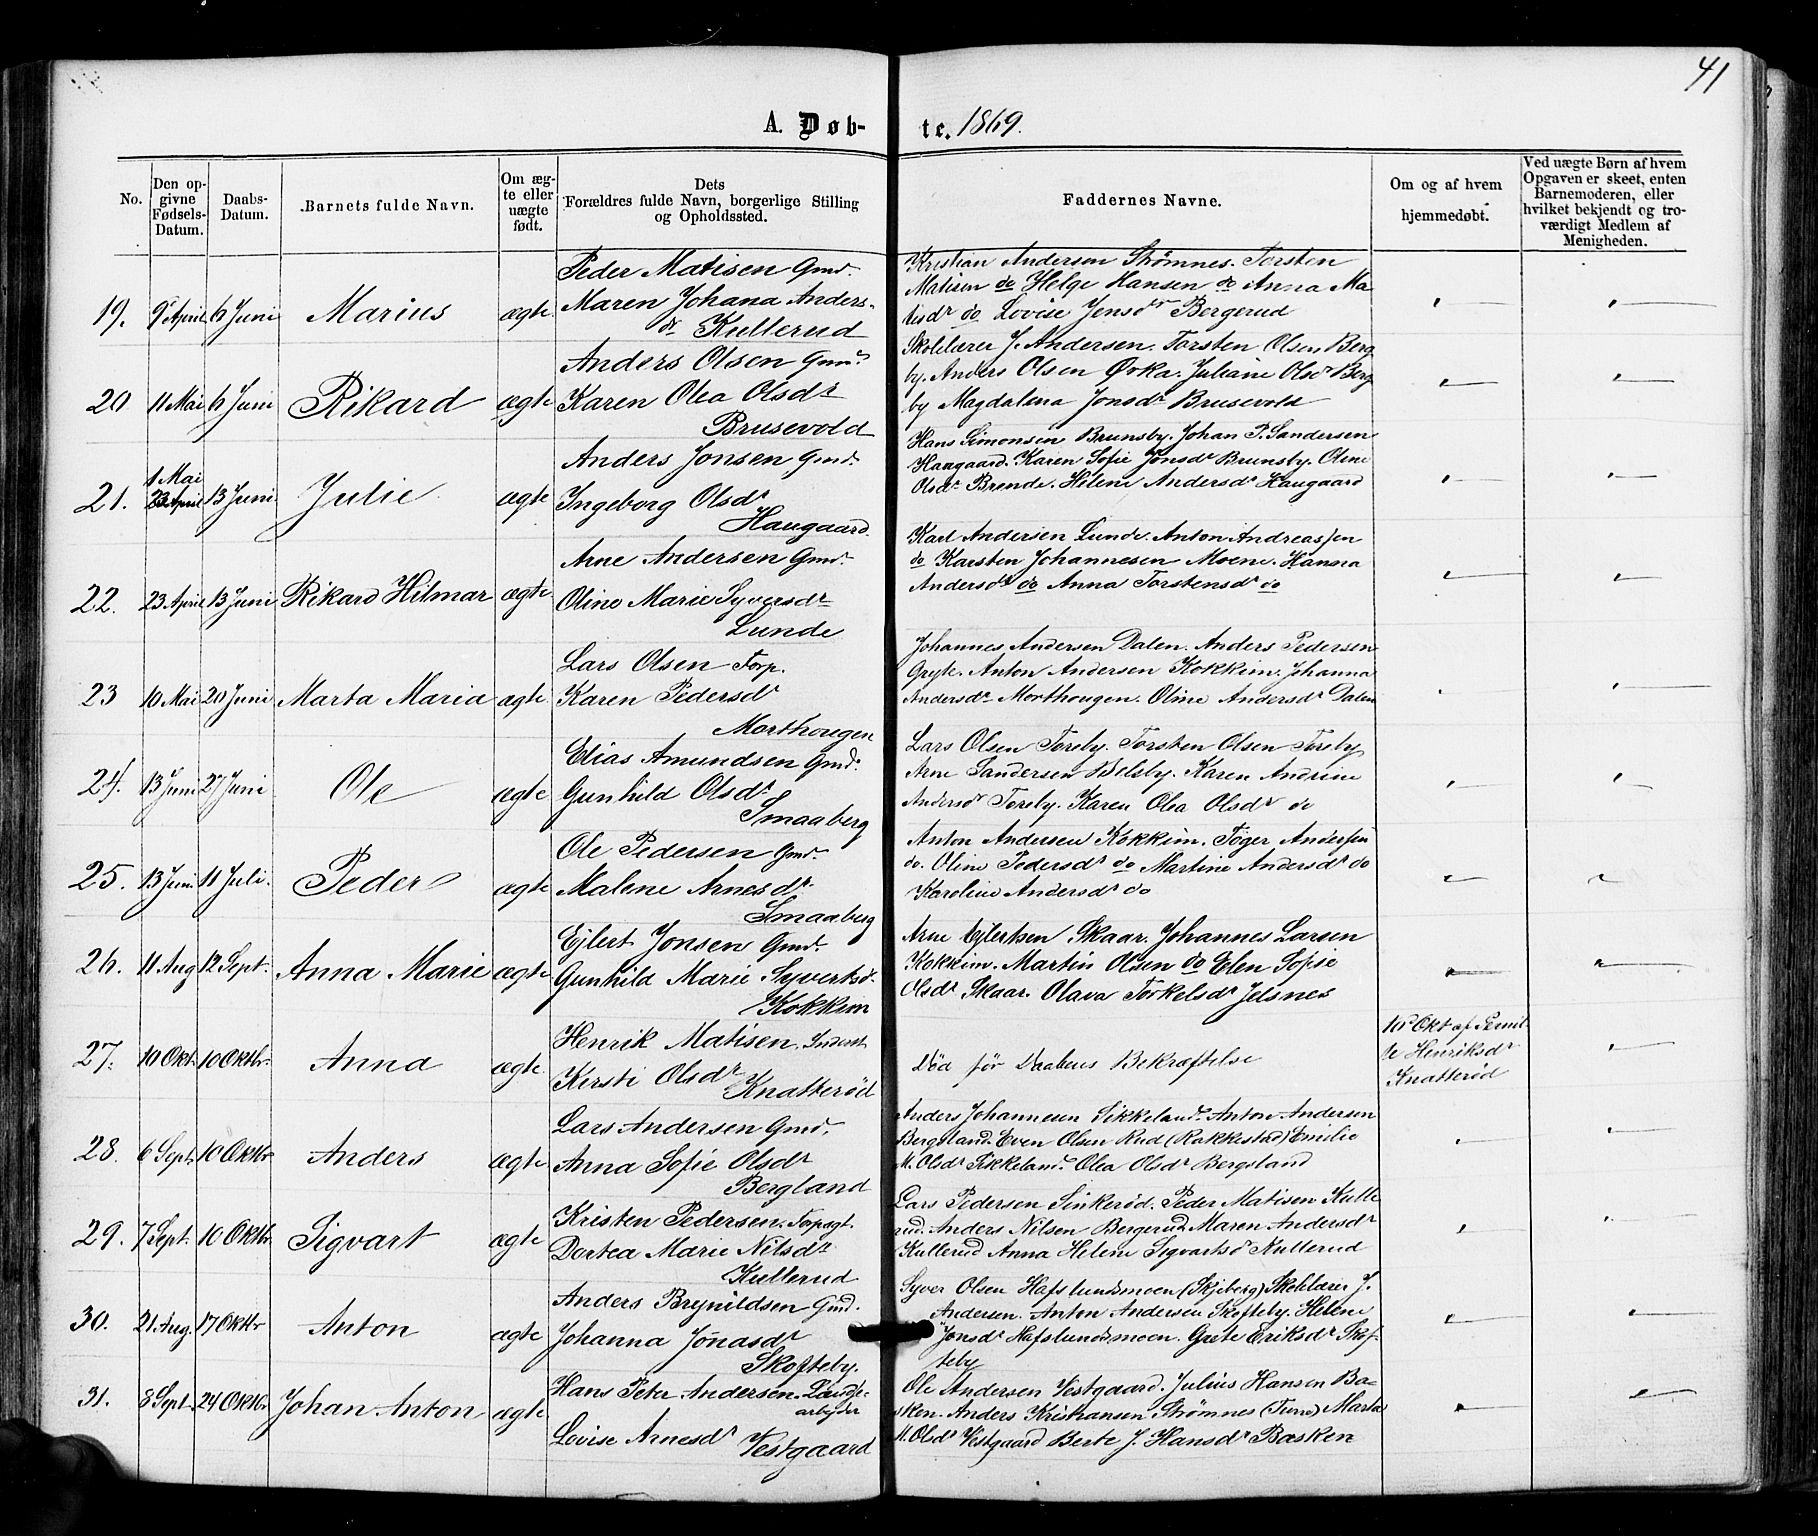 41
A. Døb- te. 1869.
No.
Den op-
givne
Fødsels-
Datum.
Daabs-
Datum.
Barnets fulde Navn.
Om æg-
te eller
uægte
født.
Dets
Forældres fulde Navn, borgerlige Stilling
og Opholdssted.
Faddernes Navne.
Om og af hvem
hjemmedøbt.
Ved uægte Børn af hvem
Opgaven er skeet, enten
Barnemoderen, eller
hvilket bekjendt og tro-
værdigt Medlem af
Menigheden.
19. 9 April 6 Juni Marius ægte
Peder Matisen Gmd.
Maren Johana Anders-
dr Kullerud
Kristian Andersen Strømnes. Torsten
Matisen do Helge Hansen do Anna Ma-
tisdr do Lovise Jensdr Bergerud
20 11 Mai 6 Juni Rikard ægte
Anders Olsen Gmd.
Karen Olea Olsdr
Brusevold
Skolelærer J. Andersen. Torsten Olsen Berg
by. Anders Olsen Ørka. Juliane Olsdr Berg
by Magdalena Jonsdr Brusevold
21. 1 Mai
23 April 13 Juni Julie ægte
Anders Jonsen Gmd.
Ingeborg Olsdr
Haugaard
Hans Simonsen Brunsby. Johan P. Sandersen
Haagaard. Karen Sofie Jonsdr Brunsby. Oline
Olsdr Brende. Helene Andersdr Haugaard
22. 23 April 13 Juni Rikard Hilmar ægte
Arne Andersen Gmd.
Oline Marie Syversdr
Lunde
Karl Andersen Lunde. Anton Andreassen
do Karsten Johannesen Moene. Hanna
Andersdr do Anna Torstensdr do
23 10 Mai 20 Juni Marta Maria ægte
Lars Olsen Torp.
Karen Pedersdr
Morthougen
Johannes Andersen Dalen. Anders Pedersen
Gryte. Anton Andersen Kokkim. Johanna
Andersdr Morthougen. Oline Andersdr Dalen
24. 13 Juni 27 Juni Ole ægte
Elias Amundsen Gmd.
Gunhild Olsdr
Smaaberg
Lars Olsen Toreby. Torsten Olsen Toreby
Arne Sandersen Belsby. Karen Andrine
Andersdr Toreby. Karen Olea Olsdr do
25. 13 Juni 11 Juli. Peder ægte
Ole Pedersen Gmd.
Malene Arnesdr.
Smaaberg
Anton Andersen Kokkim. Töger Andersen
do. Oline Pedersdr do Martine Andersdr do
Karoline Andersdr do
26. 11 Aug 12 Sept. Anna Marie ægte
Ejlert Jonsen Gmd.
Gunhild Marie Syvertsd.
Kokkim
Arne Ejlertsen Skaar. Johannes Larsen
Kokkim. Martin Olsen do Elen Sofie
Olsdr Skaar. Olava Torkelsdr Jelsnes
27. 10 Okt. 10 Oktbr. Anna ægte
Henrik Matisen Inderst
Kersti Olsdr
Knatteröd
Död för Daabens Bekræftelse
10 Okt af Pernil-
le Henriksdr
Knatteröd
28. 6 Sept. 10 Oktbr Anders ægte
Lars Andersen Gmd.
Anna Sofie Olsdr
Bergland
Anders Johannesen Sikkeland. Anton Andersen
Bergsland. Even Olsen Rud (Rakkestad) Emilie
M. Olsdr Sikkeland. Olea Olsdr Bergsland
29. 7 Sept. 10 Oktbr Sigvart ægte
Kristen Pedersen. Torpagt.
Dortea Marie Nilsdr
Kullerud
Lars Pedersen Sinkeröd. Peder Matisen Kulle
rud. Anders Nilsen Bergerud Maren Andersdr
Kullerud Anna Helene Sigvartsdr Kullerud
30. 21 Aug. 17 Oktbr Anton ægte
Anders Brynildsen Gmd.
Johanna Jonasdr
Skofteby.
Syver Olsen Hafslundsmoen (Skjeberg) Skolelærer J.
Andersen. Anton Andersen Skofteby. Helene
Jonsdr Hafslundsmoen. Grete Eriksdr Skof-
teby
31. 8 Sept. 24 Oktbr Johan Anton ægte
Hans Peter Andersen. Lande-
arbejder
Lovise Arnesdr Vestgaard
Ole Andersen Vestgaard. Julius Hansen Ba-
sken. Anders Kristiansen Strømnes (Tune) Marta
M. Olsdr Vestgaard Berte J. Hansdr Basken